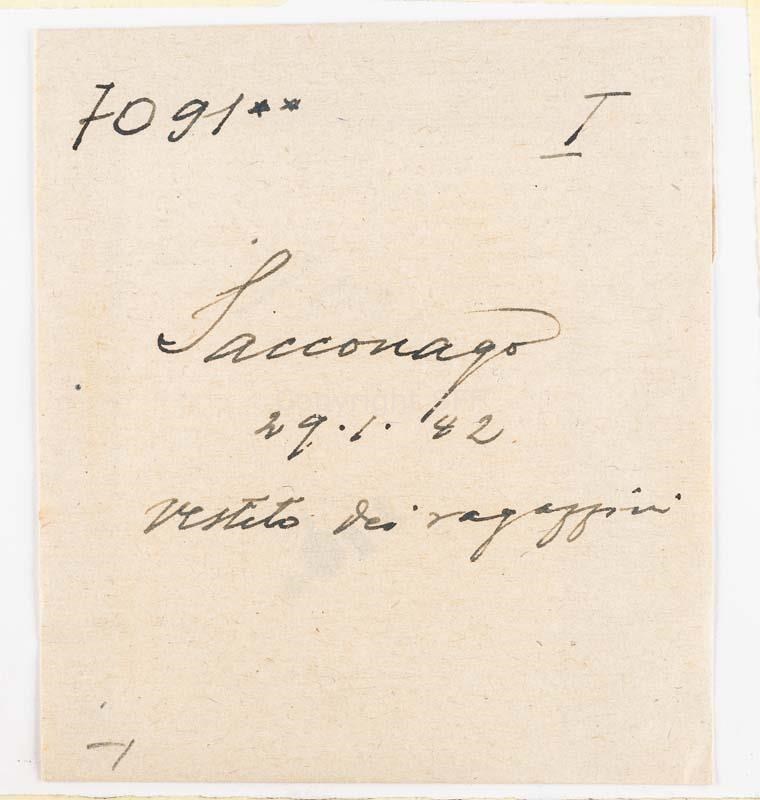 7091** I
Sacconago
29.1.42
Vestito dei ragazzini